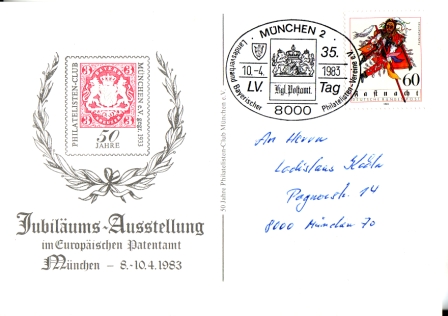 PHILATELISTEN-CLUB
MÜNCHEN e.V. gegr. 1933
3 3
3 3
50
JAHRE
Jubiläums-Ausstellung
im Europäischen Patentamt
München – 8.-10.4.1983
50 Jahre Philatelisten-Club München e.V.
MÜNCHEN 2
Landesverband Bayerischer Philatelisten-Vereine e.V.
10.-4. 1983
35.
L.V. Tag
Kgl. Postamt.
8000
60
Fastnacht
DEUTSCHE BUNDESPOST
An Herrn
Ladislaus
14
8000 München 70